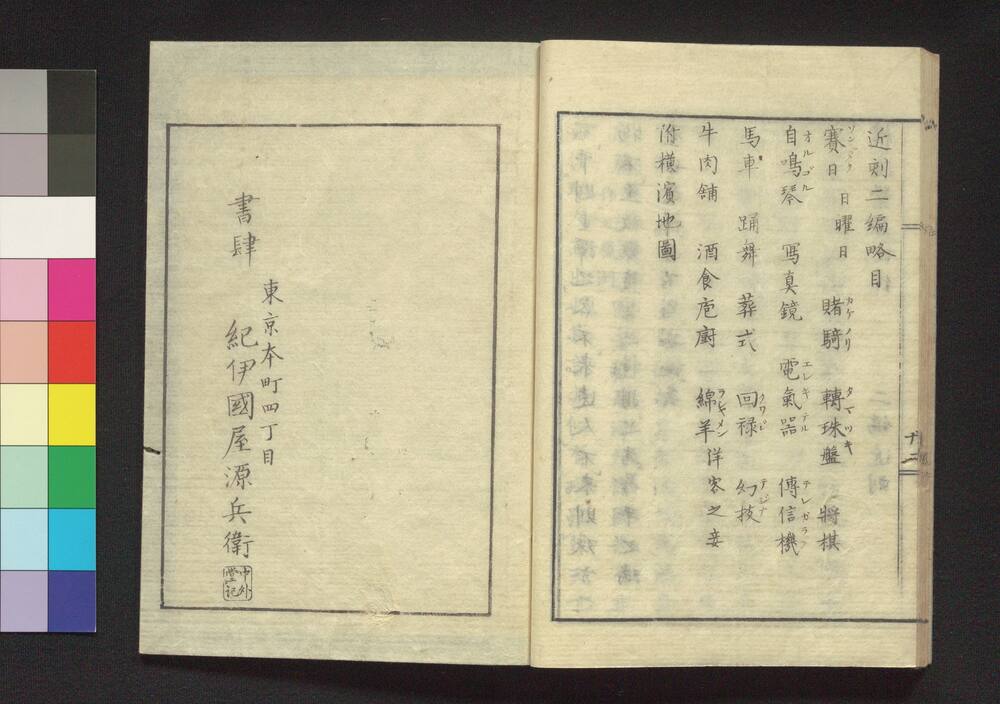 近刻二編略目
賽日 日曜日 賭騎 轉珠盤 將棋
ゾンタク カケノリ タマツキ
自鳴琴 寫真鏡 電氣器 傳信機
オルゴル エレキテル テレガラフ
馬車 踊舞 葬式 回禄 幻技
クワジ テジナ
牛肉舖 酒食庖廚 綿羊 洋客之妾
ラセメン
附橫濱地圖
十二
書肆
東京本町四丁目
紀伊國屋源兵衛
中外
堂記